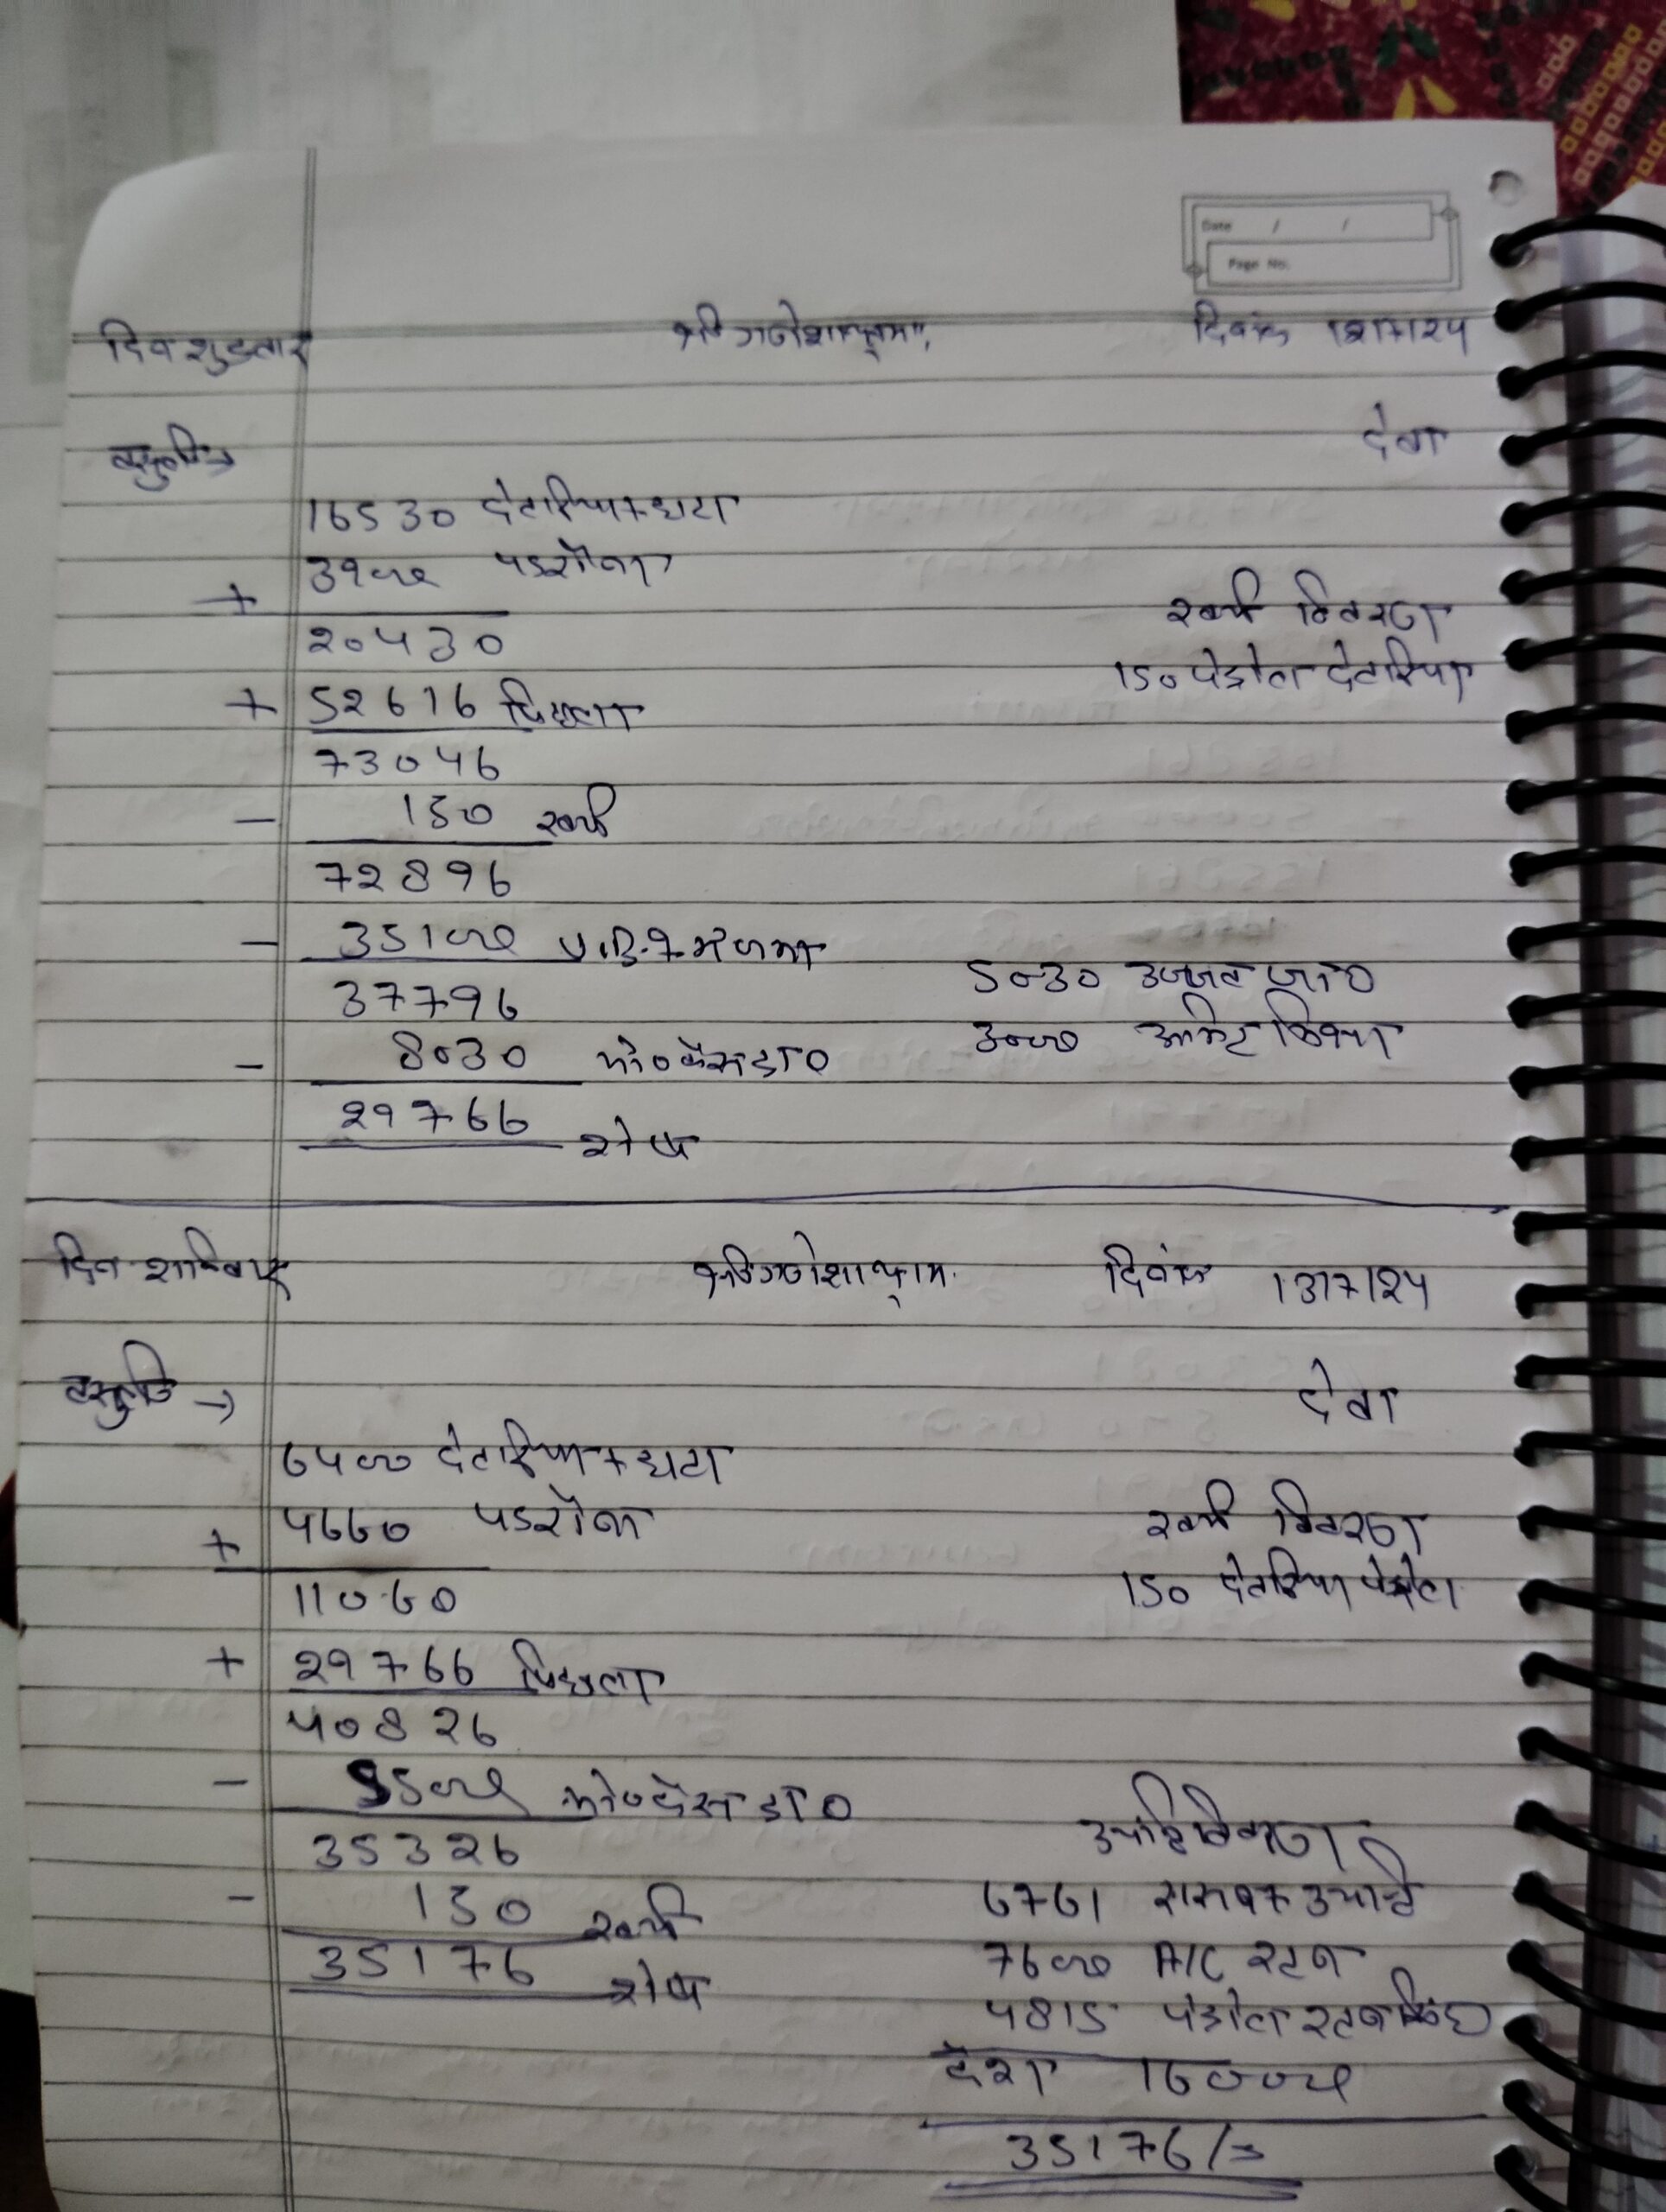 Date / /
Page No.
दिन शुक्रवार श्री गणेशाय नमः दिनांक 12/7/24
वसुली→ देवा
16530 देतरिया+घाटा
3900 पडरौना
+
20430 खर्च विवरण
+ 52616 पिछला 150 पेट्रोल देतरिया
73046
- 150 खर्च
72896
- 35100 में जमा
37796 5030
- 8030 3000
29766 शेष
दिन शनिवार श्री गणेशाय नमः दिनांक 13/7/24
वसुली → देवा
6400 देतरिया+घाटा
+ 4660 पडरौना खर्च विवरण
11060 150 देतरिया पेट्रोल
+ 29766 पिछला
40826
- 5500
35326
- 150 खर्च 6761
35176 शेष 7600 A/C रतन
4815 पेट्रोल रतन सिंह
16000
35176/=